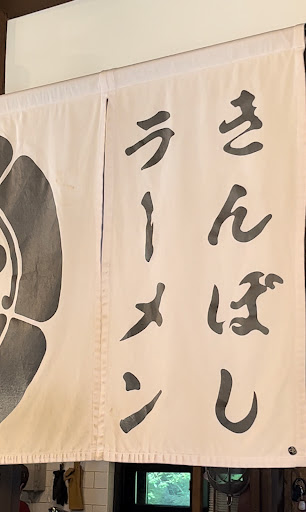 きんぼし
ラーメン